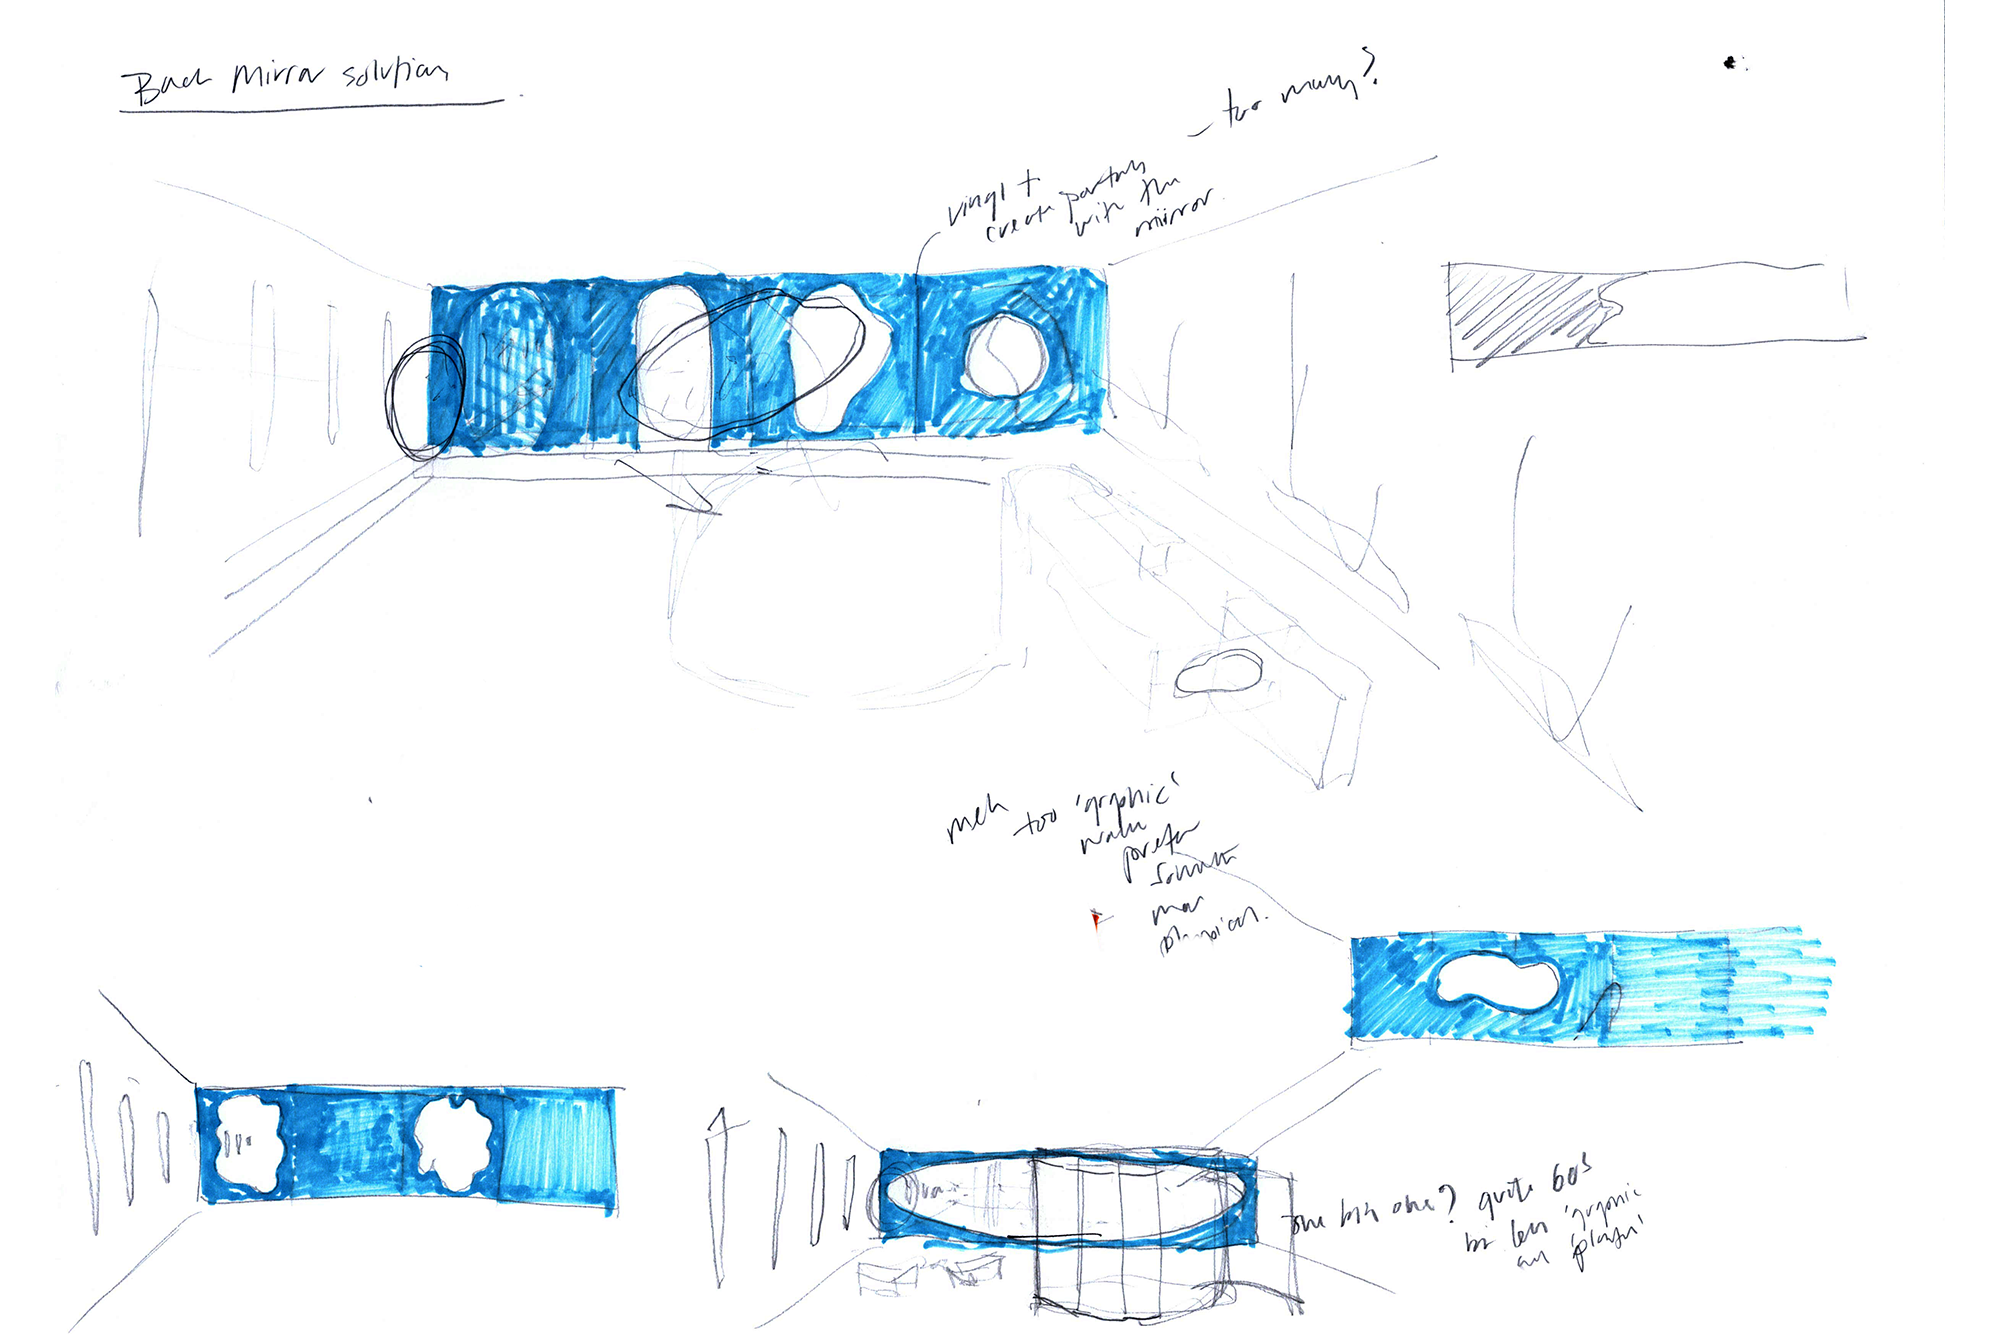 Back Mirror solutions
– too many?
vinyl +
create portals
with the
mirror.
meh
too 'graphic'
prefer
more
physical.
one big one? quite 60s
bit less 'graphic
'playful'